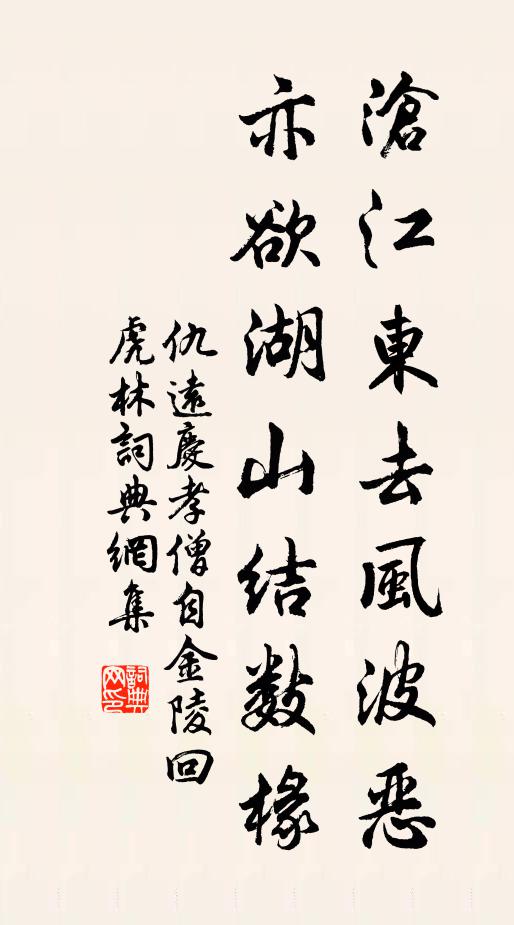 滄江東去風波惡
亦欲湖山結數椽
仇遠慶孝僧自金陵回
虎林詞典網集
詞典網印